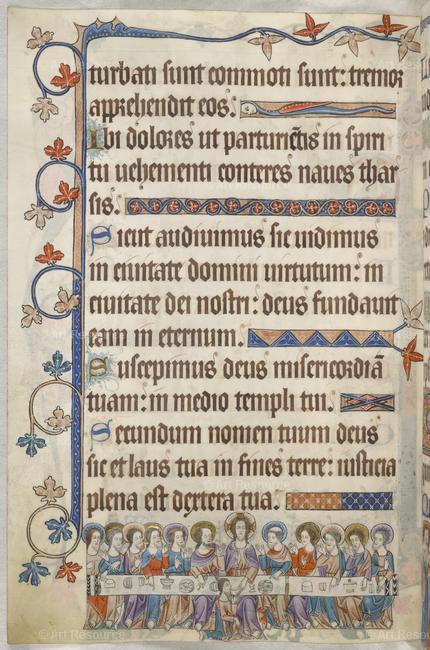 turbati sunt commoti sunt: tremor
apprehendit eos.
Ibi dolores ut parturiētis in spiri
tu uehementi conteres naues thar
sis.
Sicut audiuimus sic uidimus
in ciuitate domini uirtutum: in
ciuitate dei nostri: deus fundauit
eam in eternum.
Suscepimus deus misericordiā
tuam: in medio templi tui.
Secundum nomen tuum deus
sic et laus tua in fines terre: iusticia
plena est dextera tua.
© Art Resource